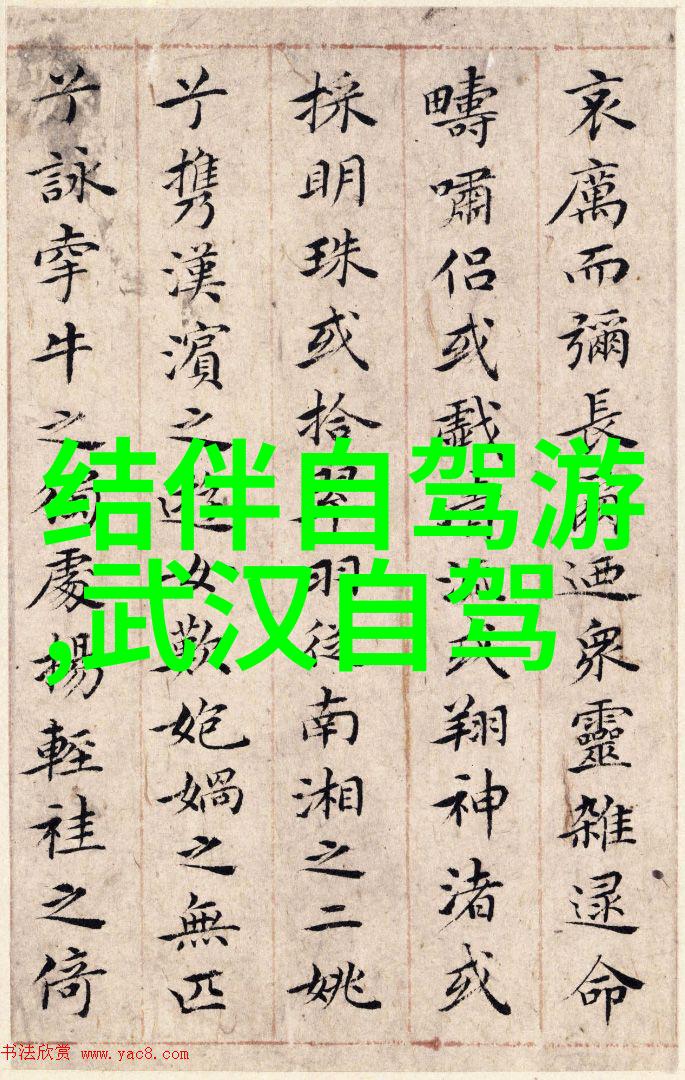 哀厲而彌長爾迺衆靈雜遝命
疇嘯侶或戲或翔神渚或
採明珠或拾翠羽從南湘之二姚
兮攜漢濱之遊女歎媧之無匹
兮詠牽牛之獨處揚輕袿之倚
结伴自驾游
,武汉自驾
书法欣赏 www.yac8.com